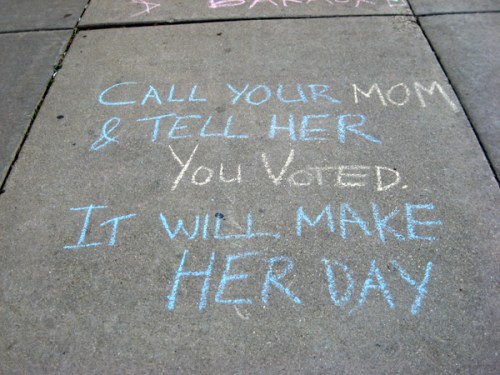 CALL YOUR MOM
& TELL HER
YOU VOTED.
IT WILL MAKE
HER DAY